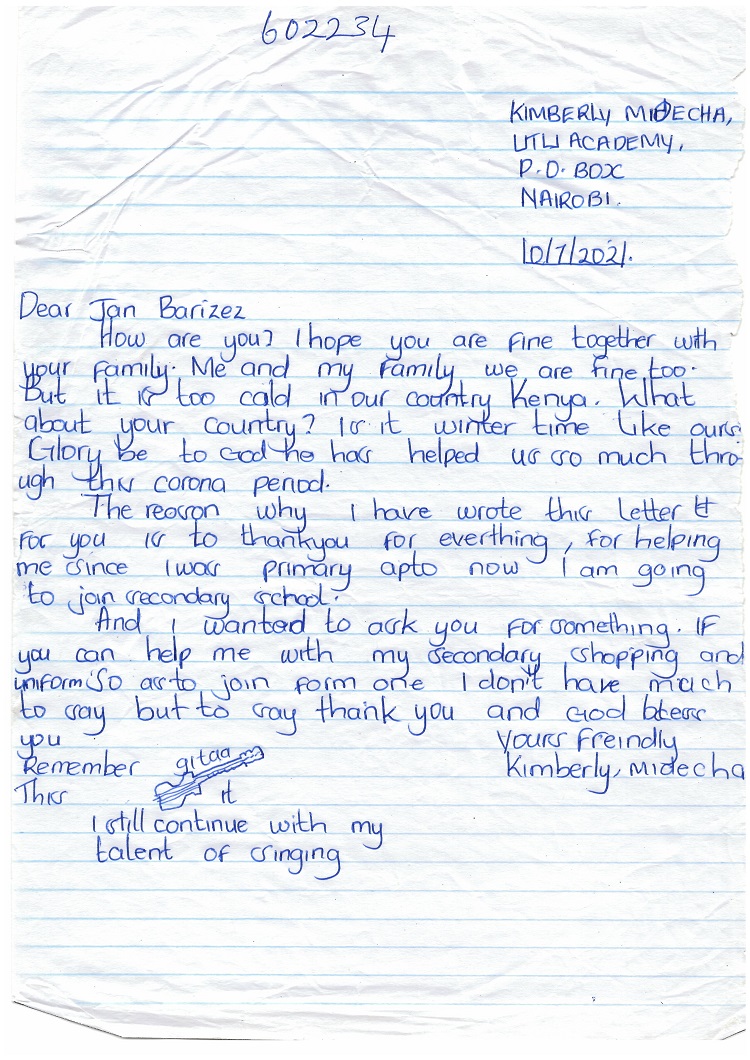 602234
KIMBERLY MIDECHA,
UTU ACADEMY,
P.O. BOX
NAIROBI.
10/7/2021.
Dear Jan Barizez
How are you? I hope you are fine together with
your family. Me and my family we are fine too.
But it is too cold in our country Kenya. What
about your country? Is it winter time like ours
Glory be to God he has helped us so much thro
ugh this corona period.
The reason why I have wrote this letter
for you is to thankyou for everthing, for helping
me since I was primary apto now I am going
to join secondary school.
And I wanted to ask you for something. If
you can help me with my secondary shopping and
uniform so as to join form one I don't have much
to say but to say thank you and God bless
you
Yours Freindly
Remember gitaa
Kimberly, Midecha
This it
I still continue with my
talent of singing